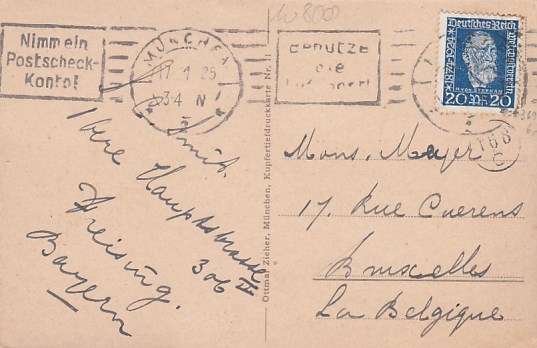 Nimm ein
Postscheck-
Konto!
MÜNCHEN
17 1 25
34 N
Benutze
die
Luftpost!
Deutsches Reich
Weltpostverein
1874-1924
20 20
Obere Hauptstrasse
306 III
Freising.
Bayern
Ottmar Zieher, München, Kupfertiefdruckkarte Nr. 1
Mons. Meyer
17, Rue Cuerens
Bruxelles
La Belgique